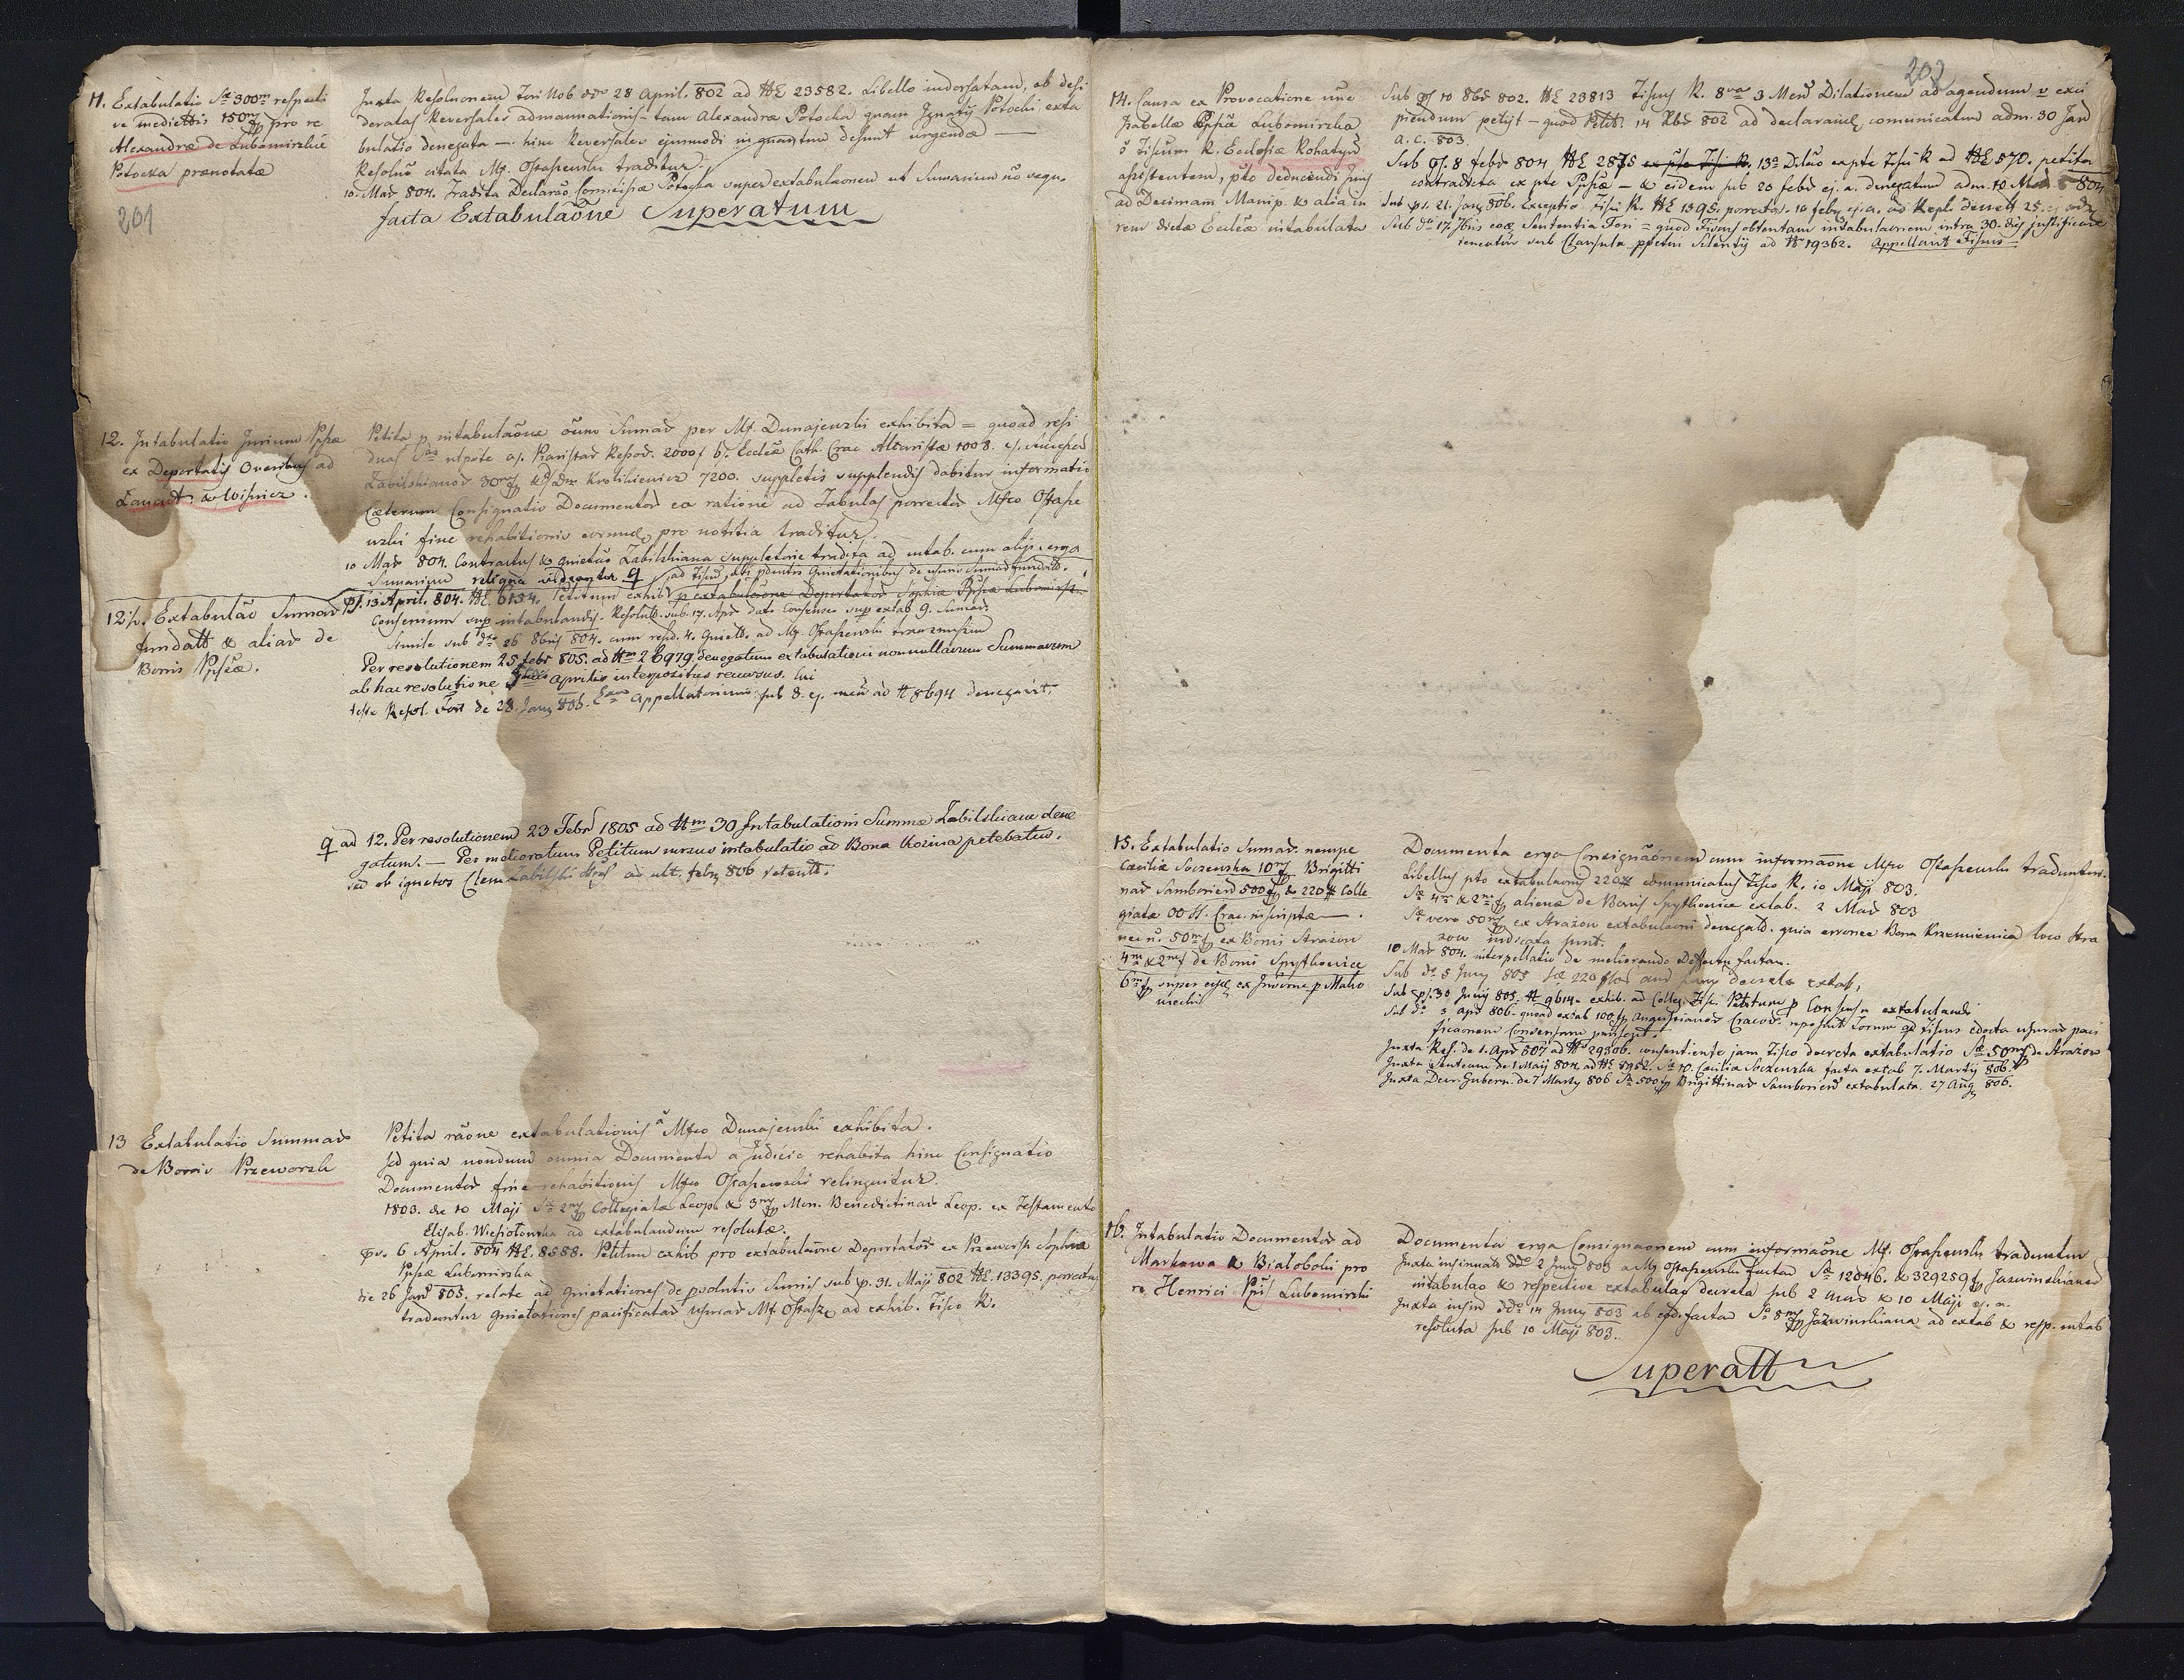 11. Extabulatio Sae 300m respecti
ve medietatis 150m fp pro re
Alexandrae de Lubomirskie
Potocka praenotatae
201
Juxta Resolutionem Fori Nob. ddo 28 April. 802 ad NE 23582. Libello indorsatam, ob desi
deratas Reversales admanuationis tam Alexandra Potocka quam Ignatij Potocki exta
bulatio denegata — hinc Reversales ejusmodi in quantum desunt urgendae —
Resoluō citata Mf. Ostaszewski traditur
10. Mar 804. Tradita Declarāō Comitissae Potocka super extabulaonem ut Sumarium
facta Extabulaōne Superatum
12. Intabulatio Jurium Ppssae
ex Deportatis Oneribus ad
Lancut. & Wisnicz.
Petita p intabulaōne Sumar per Mf. Dunajewski exhibita = quoad resi
duas utpote a/. Piaristar Resov. 2000 f b/. Ecclae Cath. Crac. Altaristae 1008.
Zabilskianar 30m fp Krolikiewicz 7200. suppletis supplendis dabitur informatio
Caeterum Consignatio Documentor ea ratione ad Tabulas porrector Mfco Ostasze
wski fine rehabitionis eorund pro notitia traditur.
10 Mar 804. Contractus & quietāō Zabilskiana suppletorie tradita ad intab. cum alijs erga
Sumarium reliqua videantur q
12½. Extabulāō Sumar
fundatt & aliar de
Bonis Ppssae.
ps. 13 April. 804. NE 6134. Petitum exhib p extabulaōne Deportator Sophiae Ppssae Lubomirsk.
Consensum sup intabulandis. Resolutō sub 17. Apr dato Consensu sup extab 9. Sumar
Simile sub do 26 8bris 804. cum resol. 4. Quiett. ad Mf. Ostaszewski transmissum
Per resolutionem 25 febr 805. ad Nm 26979. denegatum extabulationi nonnullarum Summarum
ab hac resolutione Aprilis interpositus recursus. cui
teste Resol. Fori de 28. Jany 806. Appellationum sub 8. ej. men ad N 8694 denegavit.
q ad 12. Per resolutionem 23 Febr 1805 ad Nm 30 Intabulationi Summae Zabilskianae dene
gatum. — Per melioratum Petitum rursus intabulatio ad Bona Kozina petebatur.
sed ob ignotos Clem Zabilski ad ult. febr 806 retentt.
13 Extabulatio Summar
de Bonis Przeworsk
Petita rāone extabulationis a Mfco Dunajewski exhibita.
sed quia nondum omnia Documenta a Judicio rehabita hinc Consignatio
Documentor fine rehabitionis Mfco Ostaszewski relinquitur.
1803. de 10 Maji Sae 2m fp Collegiatae Leop. & 3m fp Mon. Benedictinar Leop. ex Testamento
Elisab. Wiesiołowska ad extabulandum resolutae.
ps. 6 April. 804 NE. 8588. Petitum exhib pro extabulaōne Deportator ex Przeworsk Sophiae
Ppssae Lubomirska
die 26 Jan 805. relate ad quietationes de Sumis sub p. 31. Maji 802 NE. 13395. porrectas
traduntur quietationes pacificatar usurar Mf Ostasz ad exhib. Fisco R.
202
14. Causa ex Provocatione une
Izabellae Ppssae Lubomirska
c Fiscum R. Ecclesiae Rohatyn
assistentem, pto deducendi Juris
ad Decimam Manip. & alia in
rem dictae Ecclae intabulata
Sub ps 10 8br 802. NE 23813 Fiscus R. 8va 3 Men Dilationem ad agendum v exci
piendum petijt — quod Petit. 14 Xbr 802 ad declarand comunicatum adm. 30 Jan
a. c. 803.
Sub ps. 8 febr 804 NE 2875 ex pte Fisci R. 13a Dilāō ex pte Fisci R ad NE 570. petita
contradicta ex pte Ppssae — & eidem sub 20 febr ej. a. denegatum adm. 10 804
Sub ps. 21. Jany 806. Exceptio Fisci R. NE 1395. porrecta. 10 febr ej. a. ad Repl.
Sub do 17. 7bris Sententia Fori = quod Fiscus obtentam intabulaonem intra 30 dies justificare
teneatur sub Clausula ppetui Silentij ad N 19362. Appellavit Fiscus —
15. Extabulatio Sumar. nempe
Caeciliae Soczewska 10m f Brigitti
nar Samborien 500 fp & 220# Colle
giatae OO SS. Crac. inscriptae — .
nec n. 50m fp ex Bonis Strazow
4m & 2m f de Bonis Spytkowice
6m fp super ex
Documenta erga Consignāōnem cum informāōne Mfco Ostaszewski traduntur.
Libellus pto extabulaonis 220# comunicatus Fisco R. 10 Maji 803.
Sa 4m & 2m fp alienae de Bonis Spytkowice extab. 2 Mar 803
Sa vero 50m fp ex Strazow extabulaoni denegatt. quia erronee Bona Krzemienica loco Stra
zow indicata sunt.
10 Mar 804. interpellatio de meliorando Defectu factam.
Sub do 5 Juny 805 Sae 220 decreta extab,
Sub ps. 30 Junij 805. N 9614. exhib. ad Colleg. Fisci Petitum p Consensu extabulandi
Sub do 3 Apr 806. quoad extab 100 fp Augustianor Cracov. reposuit Forum qd Fiscus edocta usurar paci
ficaonem Consensum
Juxta Res. de 1. Apr 807 ad N 29306. consentiente jam Fisco decreta extabulatio Sae 50m fp de Strazow
Juxta Sententiam de 1 Maij 804. ad NE 8952. Sa 10. Caecilia Soczewska facta extab 7. Martij 806.
Juxta Decr. Gubern. de 7 Marty 806 Sa 500 fp Brigittinar Samborien extabulata. 27 Aug 806.
16. Intabulatio Documentor ad
Markowa & Białoboki pro
re Henrici Ppis Lubomirski
Documenta erga Consignaonem cum informāōne Mf. Ostaszewski traduntur
Juxta insinuata ddo 2 Juny 803 a Mf Ostaszewski factam Sa 12046. & 329259 fp Jazwinskianar
intabulaō & respective extabulaō decreta sub 2 Maÿ & 10 Maji ej. a.
Juxta insin ddo 14 Juny 803 ab eod. factam Sa 8m fp Jazwinskiana ad extab & resp. intab
resoluta sub 10 Maji 803.
Superatt